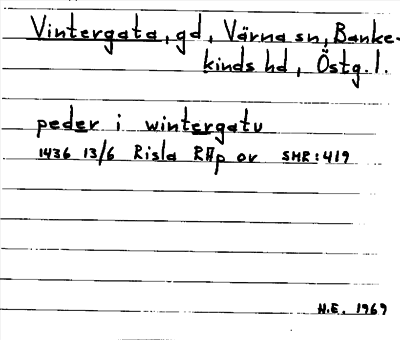 Vintergata, gd, Värna sn, Banke-
kinds hd, Östg. l.
peder i wintergatu
1436 13/6 Risla RAp or SMR:419
N.E. 1969